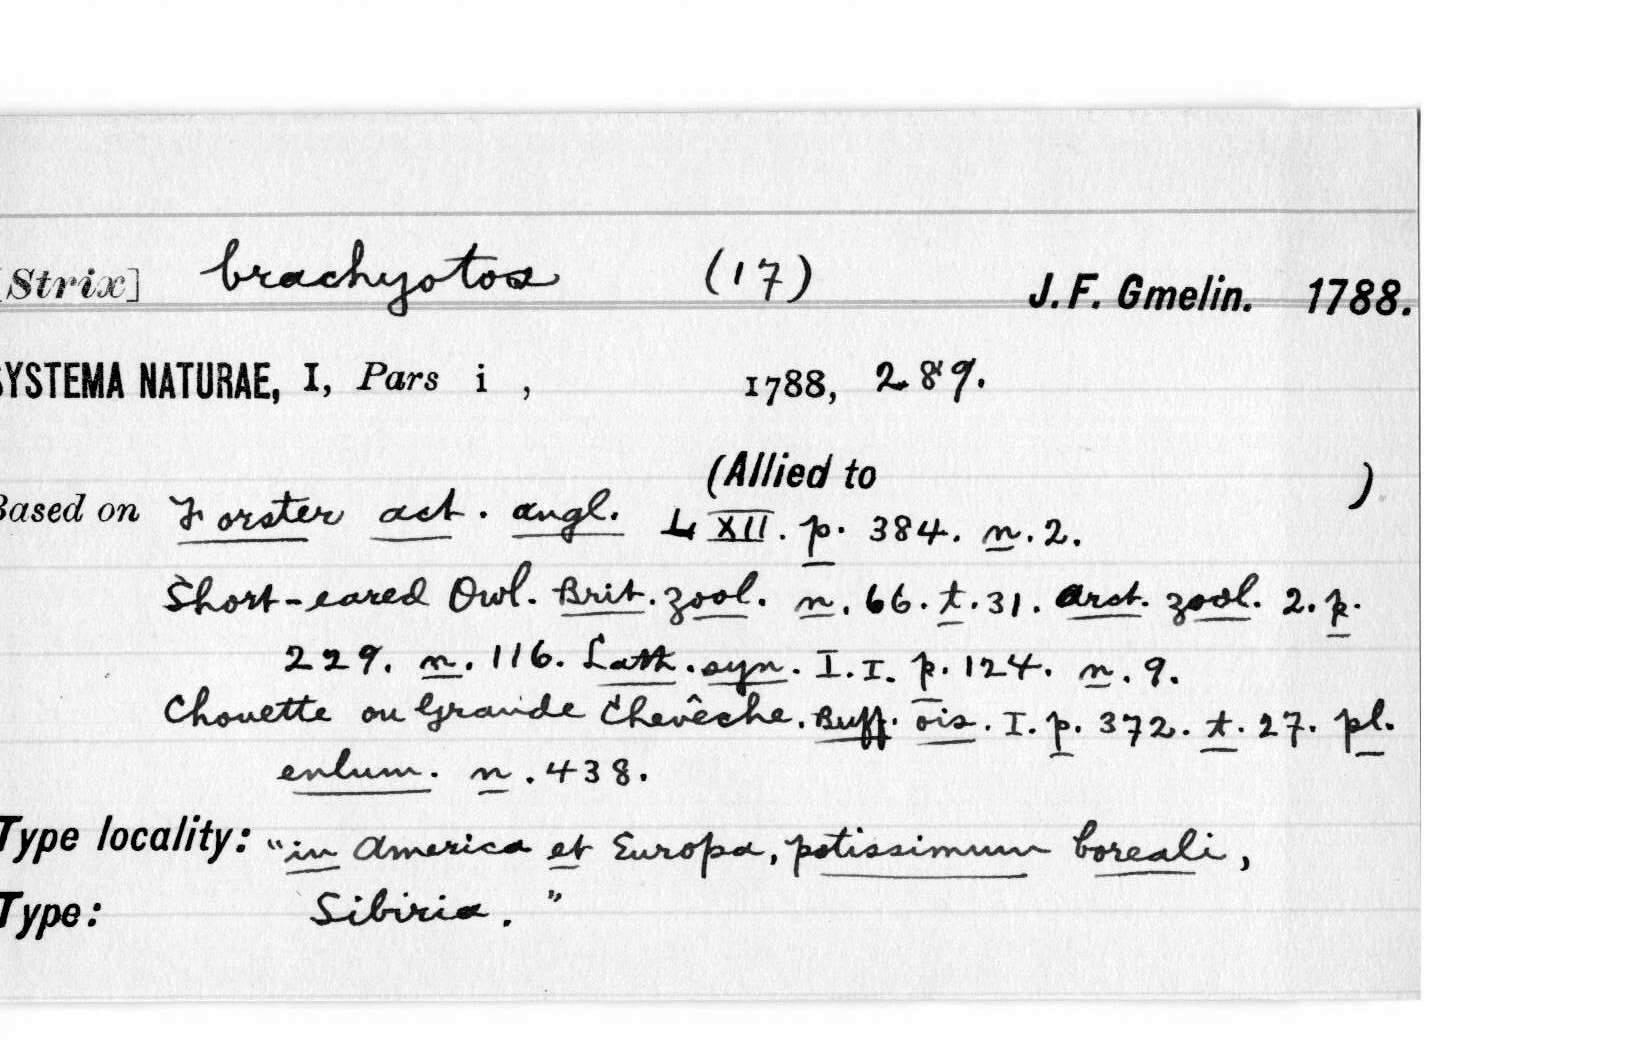 [Strix] brachyotos (17) J. F. Gmelin. 1788.
SYSTEMA NATURAE, I, Pars i , 1788, 289.
(Allied to )
Based on Forster act. angl. LXII. p. 384. n. 2.
Short-eared Owl. Brit. zool. n. 66. t. 31. arct. zool. 2. p.
229. n. 116. Lath. syn. I. I. p. 124. n. 9.
Chouette ou Grande Chevêche. Buff. ois. I. p. 372. t. 27. pl.
enlum. n. 438.
Type locality: "in America et Europa, potissimum boreali,
Type: Sibiria."